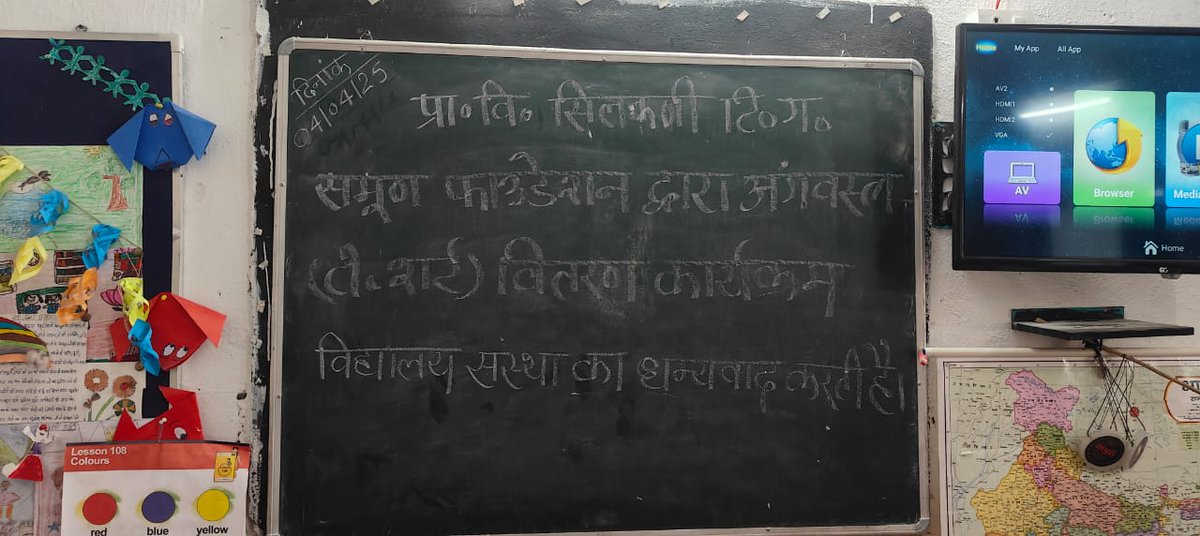 दिनांक
04/04/25
प्रा॰वि॰ सिलकनी टि॰ग॰
समूण फाउंडेशन द्वारा अंगवस्त्र
(टी॰शर्ट) वितरण कार्यक्रम
विद्यालय संस्था का धन्यवाद करती है।
Home My App All App
AV2
HDMI1
HDMI2
VGA
AV
Browser
Media
Home
Lesson 108
Colours
red blue yellow